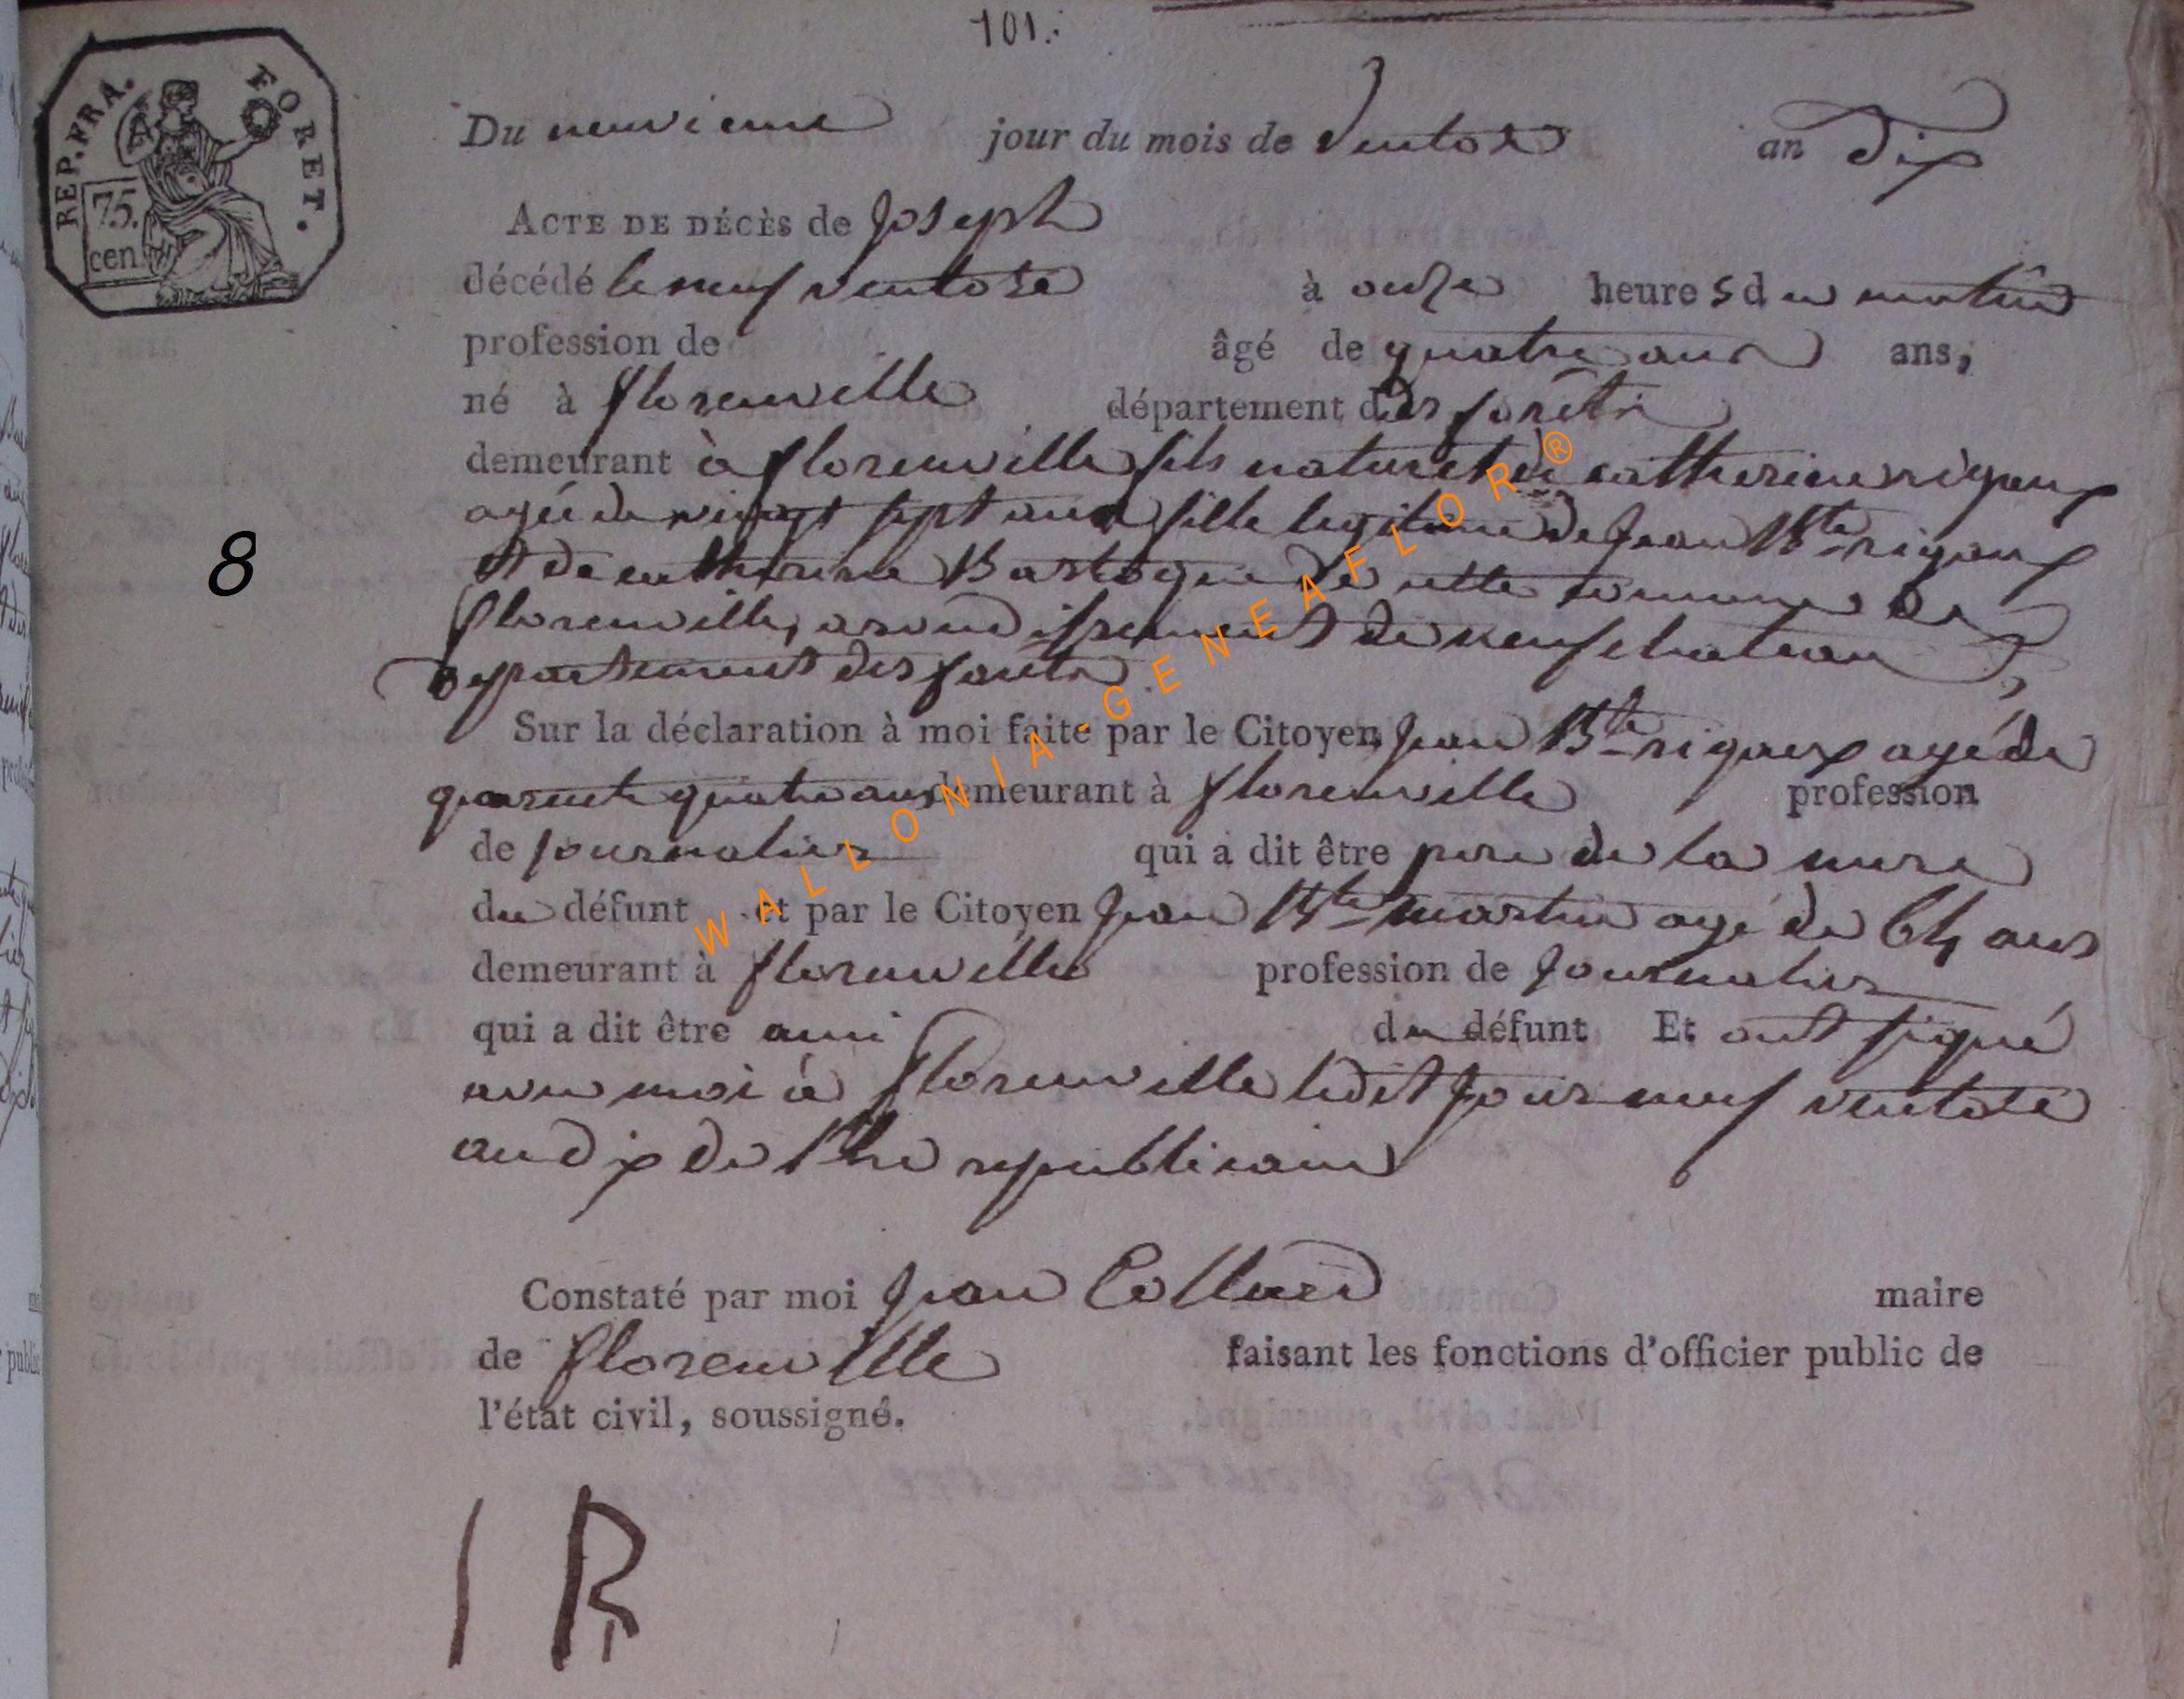 101.
REP. FRA. FORET.
75. cen.
Du neuvieme jour du mois de Ventose an Dix
ACTE DE DÉCÈS de Joseph
décédé le neuf ventose à onze heures du matin
profession de âgé de quatre ans ans,
né à florenville département des forêts
demeurant à florenville fils naturel de catherine rigaux
agée de vingt sept ans fille legitime de Jean Bte rigaux
et de catherine Bastogne de cette commune de
florenville, arondissement de neufchateau
departement des forêts
Sur la déclaration à moi faite par le Citoyen Jean Bte rigaux agé de
quarente quatre ans demeurant à florenville profession
de journalier qui a dit être pere de la mere
du défunt et par le Citoyen Jean Bte martin agé de 64 ans
demeurant à florenville profession de journalier
qui a dit être ami du défunt Et ont signé
avec moi à florenville ledit jour neuf ventose
an dix de l'Ere republicaine
8
Constaté par moi Jean Collard maire
de florenville faisant les fonctions d'officier public de
l'état civil, soussigné.
I R
WALLONIA-GENEAFLOR®